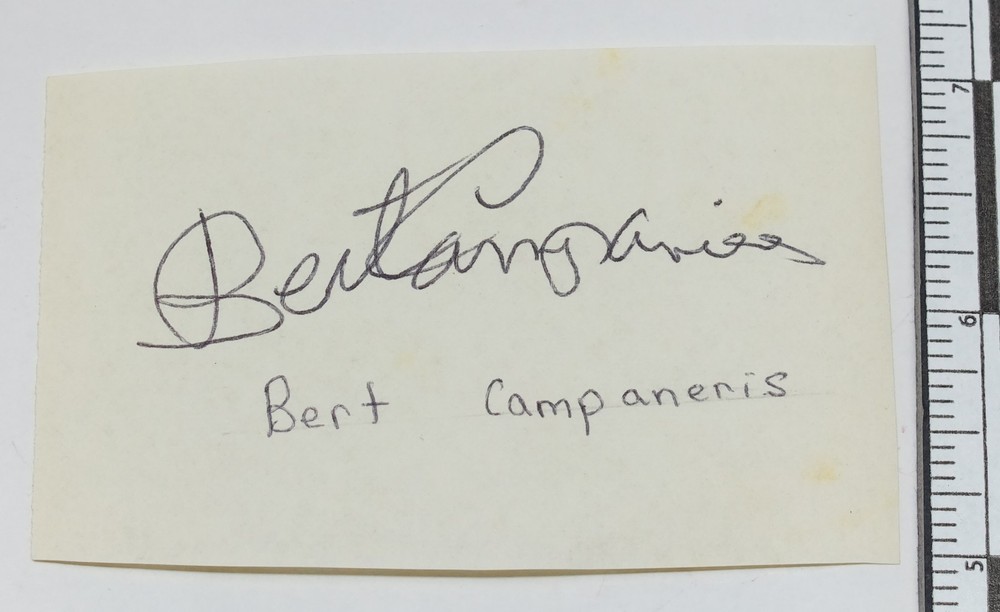 Bert Campaneris
Bert Campaneris
7
6
5